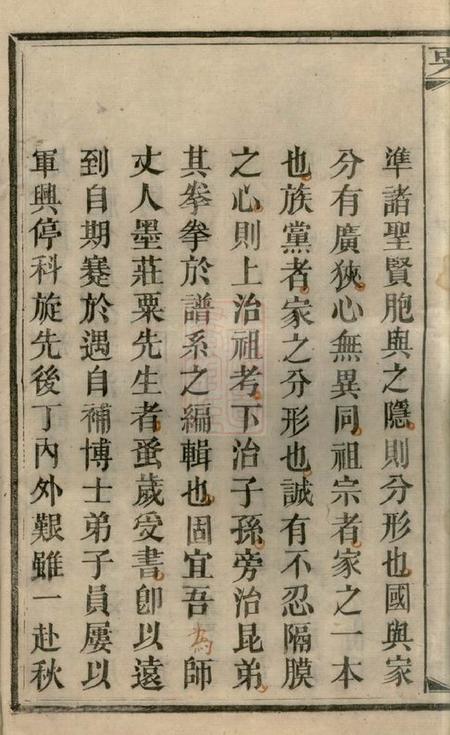 準諸聖賢胞與之隱則分形也國與家
分有廣狹心無異同祖宗者家之一本
也族黨者家之分形也誠有不忍隔膜
之心則上治祖考下治子孫旁治昆弟
其拳拳於譜系之編輯也固宜吾為師
丈人墨莊粟先生者蚤歲受書卽以遠
到自期蹇於遇自補博士弟子員屢以
軍興停科旋先後丁內外艱雖一赴秋